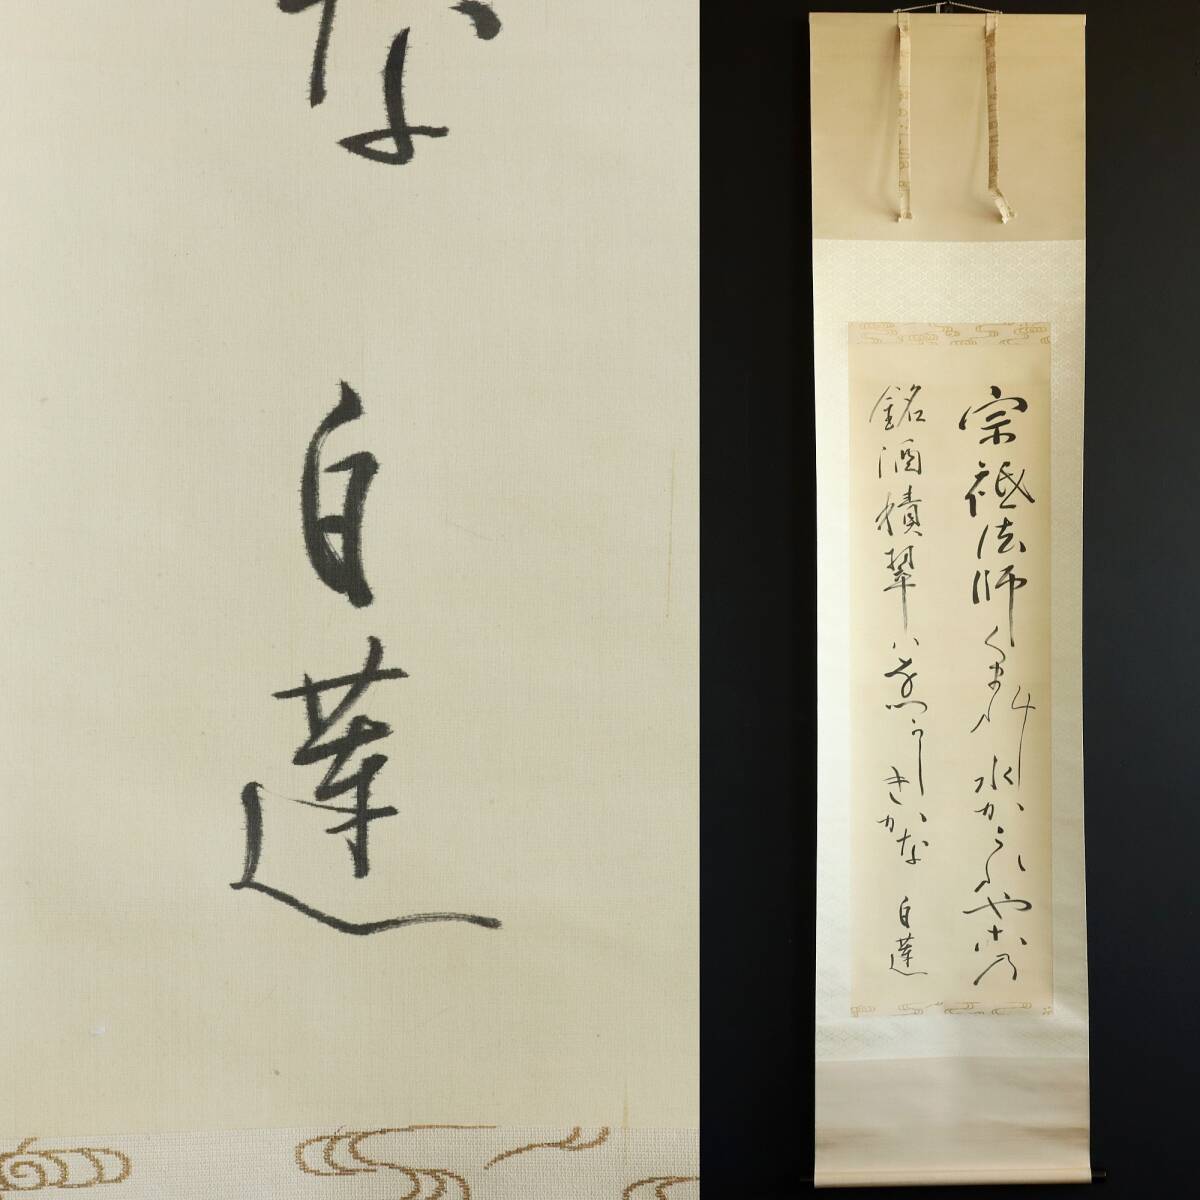 な
白蓮
宗祇法師くまれし水かこれやこの
銘酒積翠ハ薫しきかな 白蓮